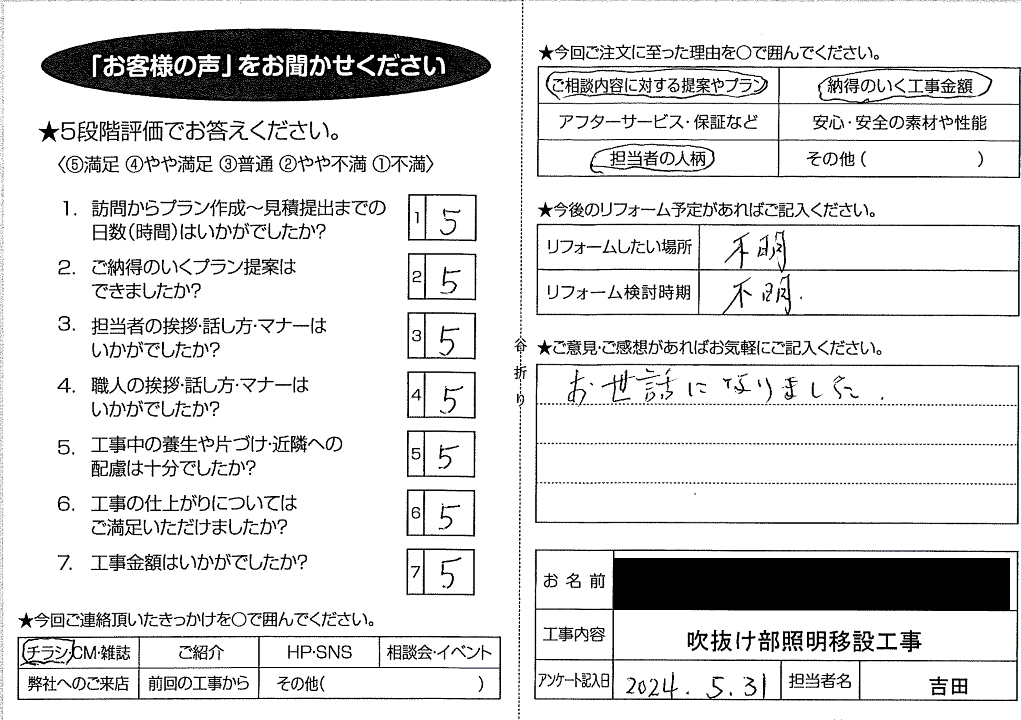 「お客様の声」をお聞かせください
★5段階評価でお答えください。
〈⑤満足 ④やや満足 ③普通 ②やや不満 ①不満〉
1. 訪問からプラン作成〜見積提出までの
日数(時間)はいかがでしたか?
1 5
2. ご納得のいくプラン提案は
できましたか?
2 5
3. 担当者の挨拶・話し方・マナーは
いかがでしたか?
3 5
4. 職人の挨拶・話し方・マナーは
いかがでしたか?
4 5
5. 工事中の養生や片づけ・近隣への
配慮は十分でしたか?
5 5
6. 工事の仕上がりについては
ご満足いただけましたか?
6 5
7. 工事金額はいかがでしたか?
7 5
★今回ご連絡頂いたきっかけを〇で囲んでください。
チラシ・CM・雑誌 ご紹介 HP・SNS 相談会・イベント
弊社へのご来店 前回の工事から その他( )
谷折り
★今回ご注文に至った理由を〇で囲んでください。
ご相談内容に対する提案やプラン 納得のいく工事金額
アフターサービス・保証など 安心・安全の素材や性能
担当者の人柄 その他( )
★今後のリフォーム予定があればご記入ください。
リフォームしたい場所 不明
リフォーム検討時期 不明.
★ご意見・ご感想があればお気軽にご記入ください。
お世話になりました.
お名前
工事内容 吹抜け部照明移設工事
アンケート記入日 2024.5.31 担当者名 吉田